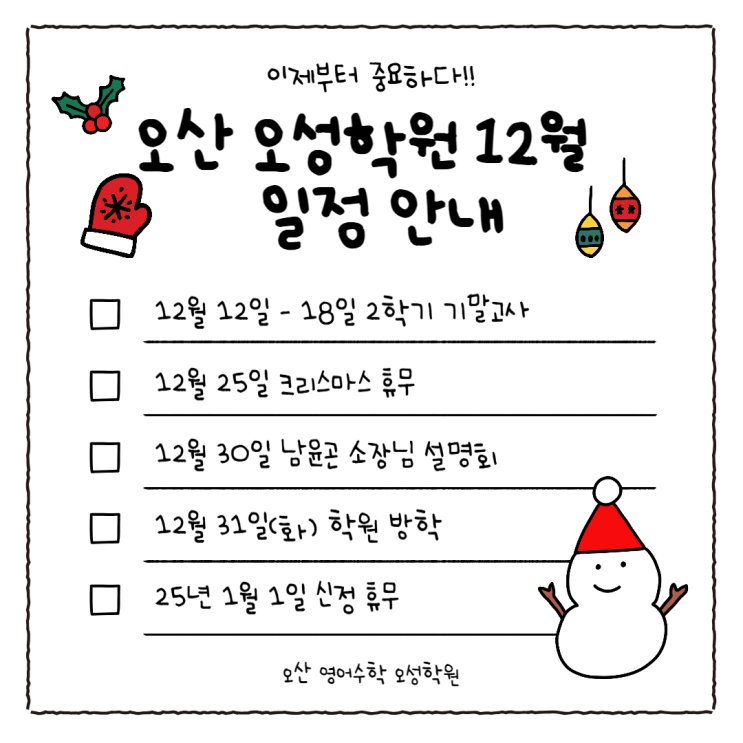 이제부터 중요하다!!
오산 오성학원 12월
일정 안내
12월 12일 - 18일 2학기 기말고사
12월 25일 크리스마스 휴무
12월 30일 남윤곤 소장님 설명회
12월 31일(화) 학원 방학
25년 1월 1일 신정 휴무
오산 영어수학 오성학원